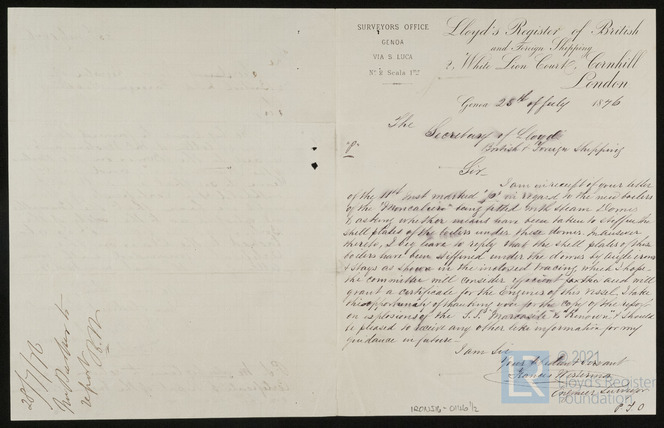 SURVEYORS OFFICE
GENOA
VIA S. LUCA
Nº 2 Scala
Lloyd's Register of British
and Foreign Shipping
2, White Lion Court, Cornhill
London
Genoa 28th of July 1876
The
Secretary of Lloyds
British & Foreign Shipping
Sir
I am in receipt of your letter
of the inst marked in regard to the new boilers
of the "Moncalieri" being fitted with Steam Domes
& asking whether means have been taken to stiffen the
shell plates of the boilers under these domes. In answer
thereto, I beg leave to reply that the shell plates of the
boilers have been stiffened under the domes by angle irons
& stays as shown in the inclosed tracing, which I hope
the committee will consider efficient for the and will
grant a certificate to the Engines of this Vessel. I take
this opportunity of thanking you for the copy of the report
on explosions of the S.S. & should
be pleased to receive any other like information for my
guidance in future.
I am Sir
Your Obedient Servant
Francis
Engineer Surveyor
P.T.O
28/7/76
report
IRON516-0146 1/2
LR
© 2021
Lloyd's Register
Foundation